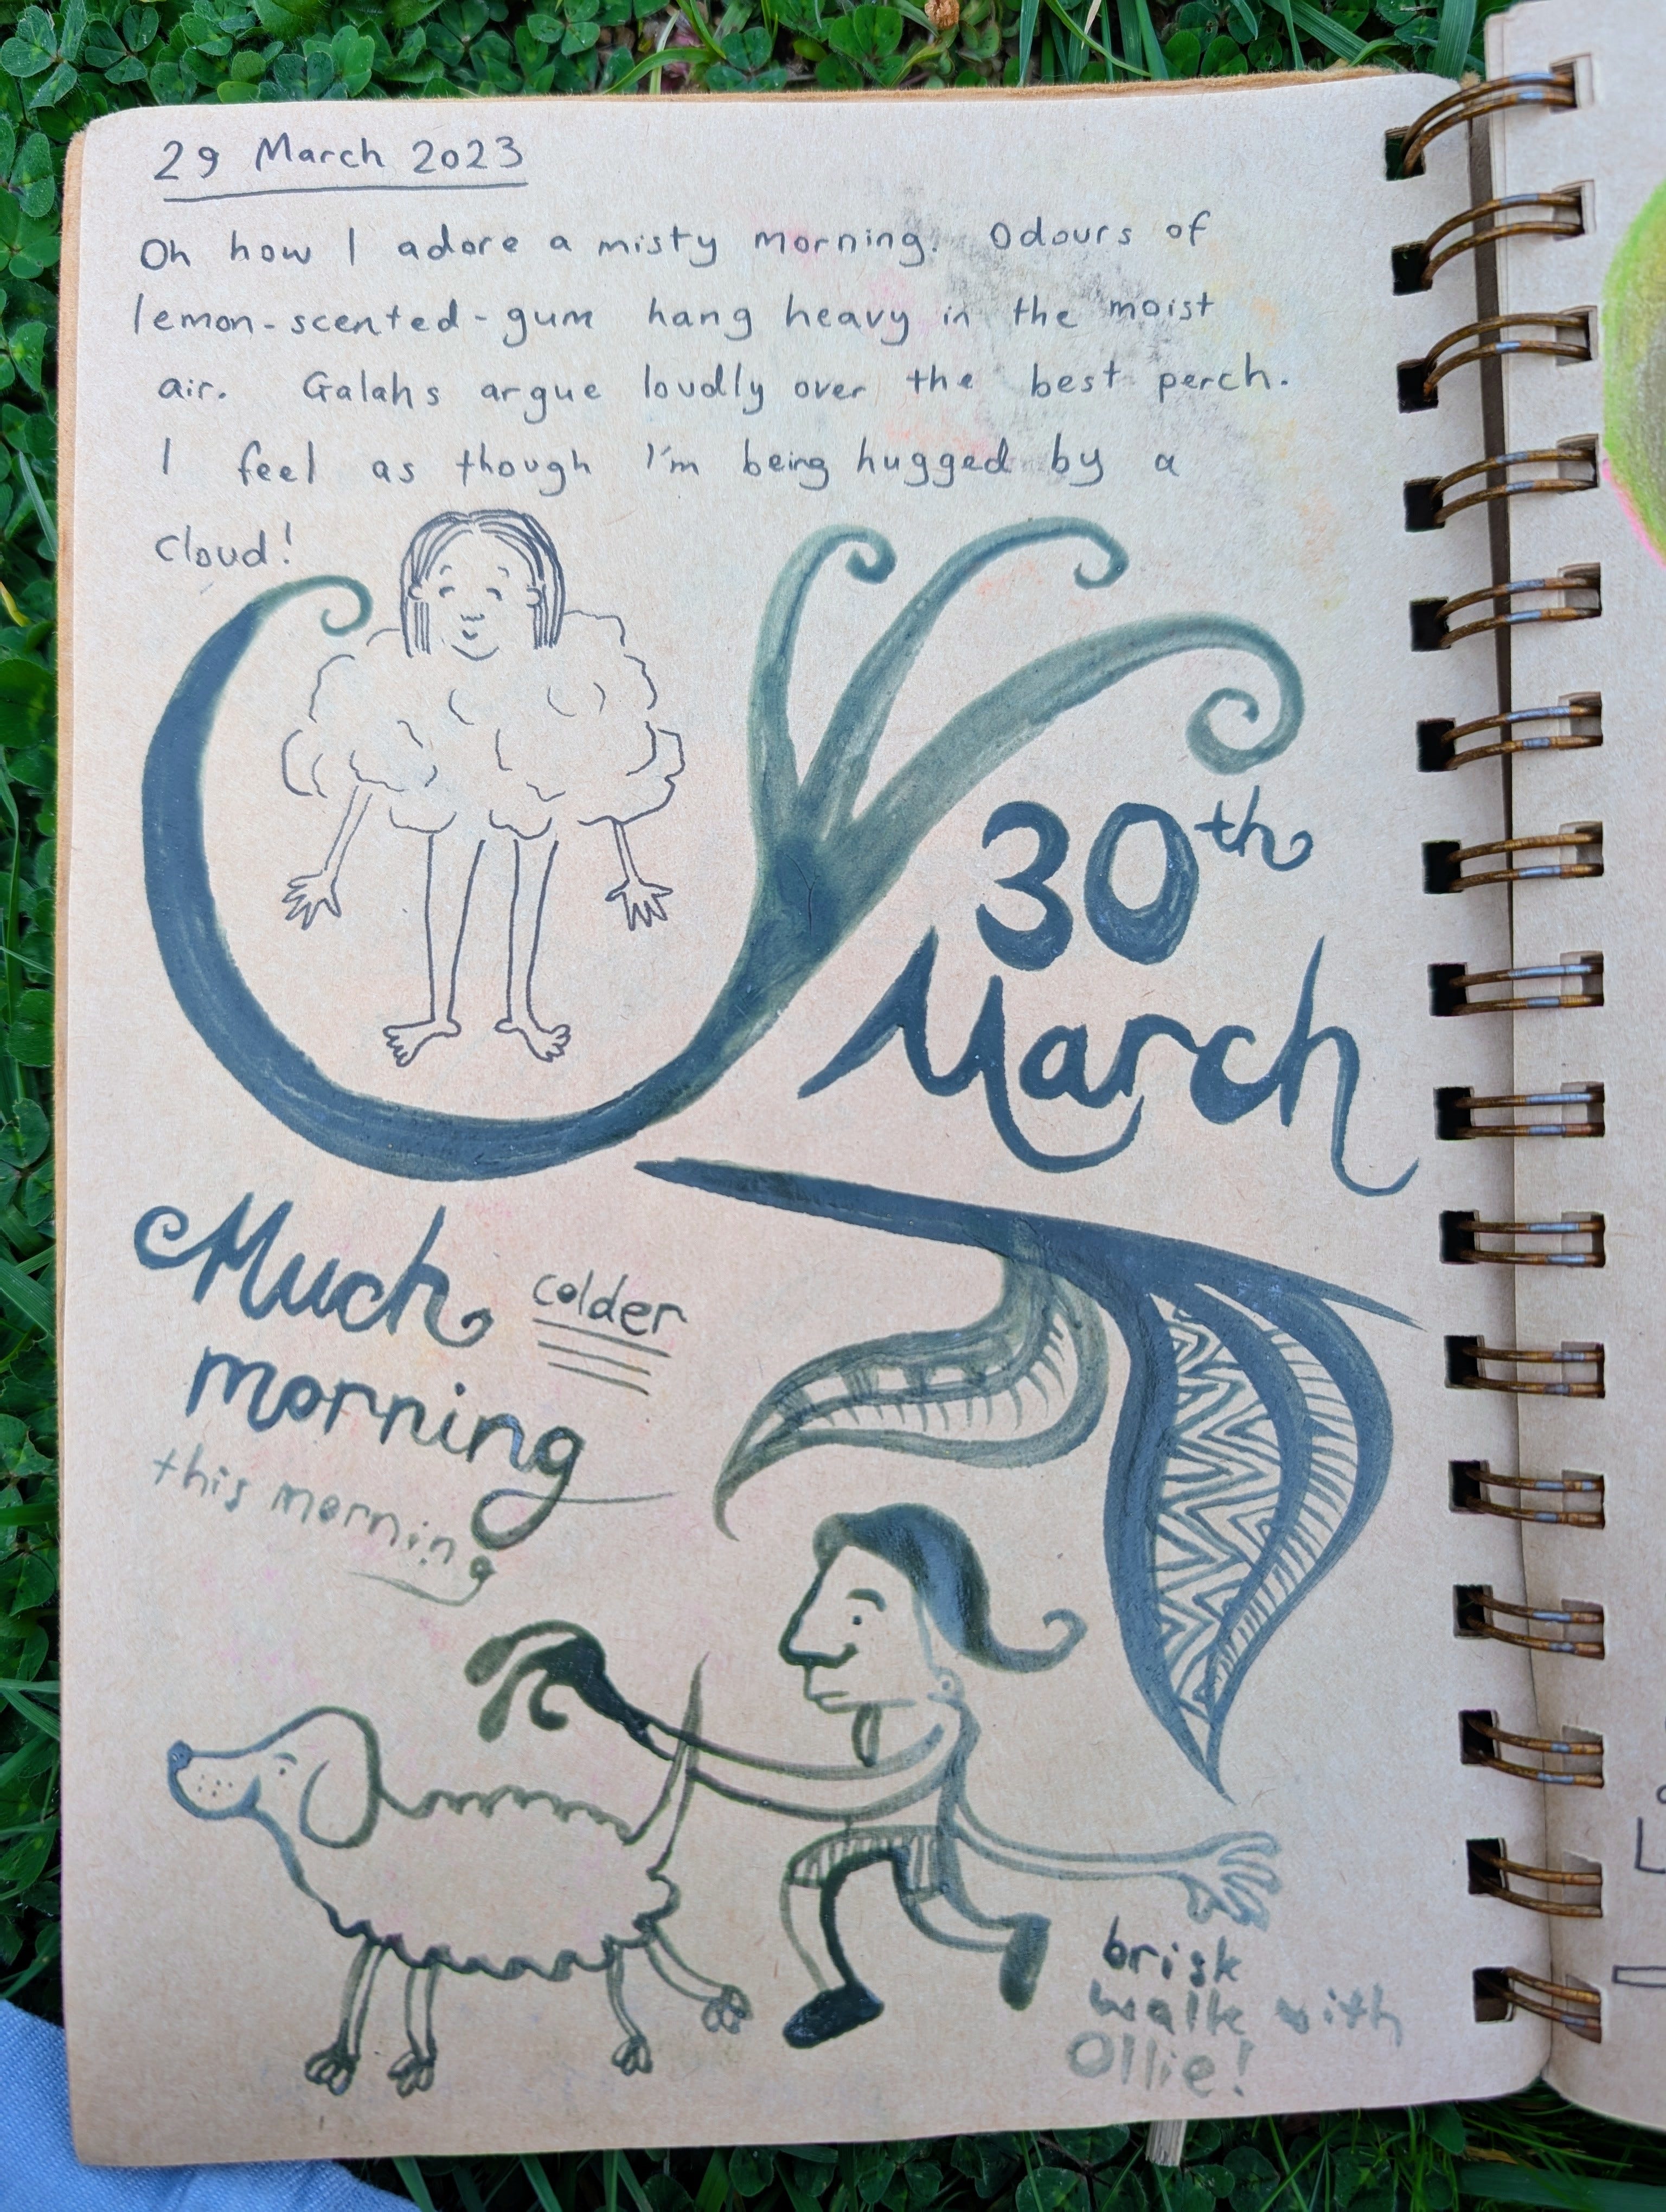 29 March 2023
Oh how I adore a misty morning. Odours of
lemon-scented-gum hang heavy in the moist
air. Galahs argue loudly over the best perch.
I feel as though I'm being hugged by a
cloud!
30th
March
Much colder
morning
this morning
brisk
walk with
Ollie!